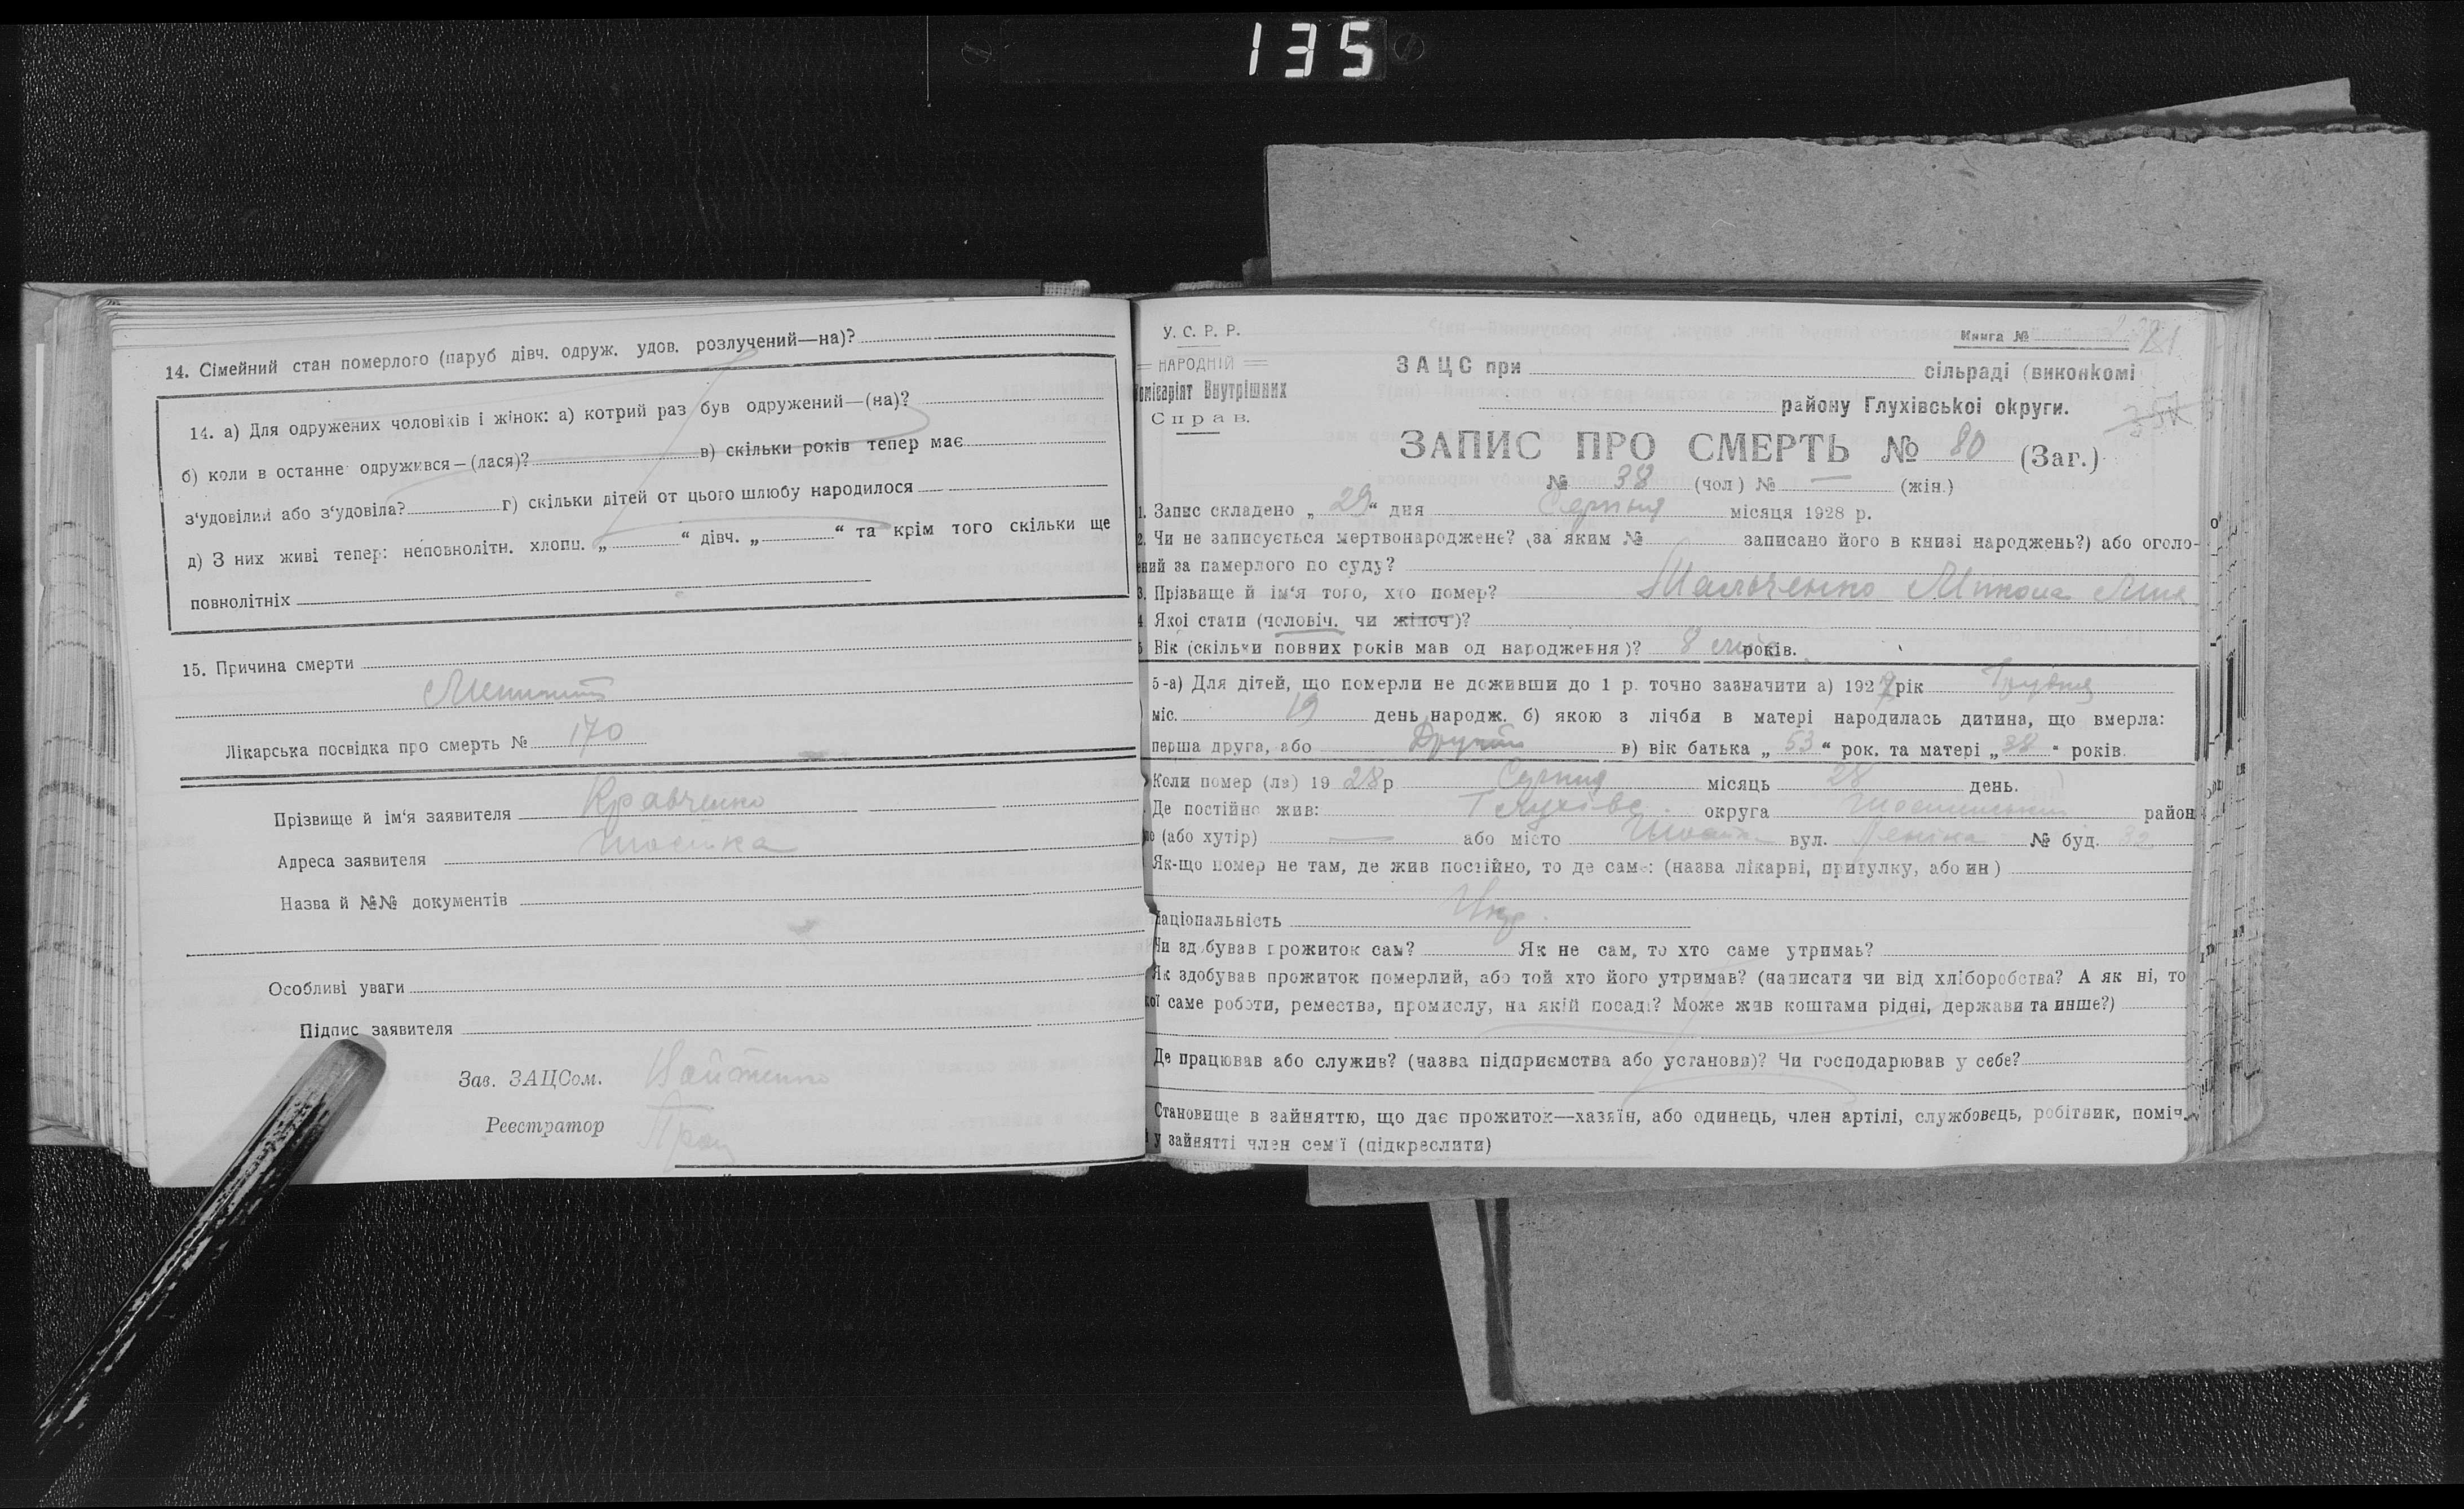 135
14. Сімейний стан померлого (паруб дівч. одруж. удов. розлучений—на)?
14. а) Для одружених чоловіків і жінок: а) котрий раз був одружений—(на)?
б) коли в останнє одружився—(лася)? в) скільки років тепер має
з‘удовілий або з‘удовіла? г) скільки дітей от цього шлюбу народилося
д) З них живі тепер: неповнолітн. хлопц. „ “ дівч. „ “ та крім того скільки ще
повнолітніх
15. Причина смерти
Менингит
Лікарська посвідка про смерть № 170
Прізвище й ім‘я заявителя Кравченко
Адреса заявителя Шостка
Назва й №№ документів
Особливі уваги
Підпис заявителя
Зав. ЗАЦСом. Войтенко
Реєстратор
У. С. Р. Р.
Книга №
НАРОДНІЙ
ЗАЦС при сільраді (виконкомі
Комісаріят Внутрішних
району Глухівської округи.
Справ.
ЗАПИС ПРО СМЕРТЬ № 80 (Заг.)
№ 38 (чол) № — (жін.)
1. Запис складено „ 29 “ дня Серпня місяця 1928 р.
2. Чи не записується мертвонароджене? (за яким № записано його в книзі народжень?) або оголо-
ений за памерлого по суду?
3. Прізвище й ім‘я того, хто помер? Микола
4. Якої стати (чоловіч. чи жіноч)?
5 Вік (скільки повних років мав од народження)? 8 років.
5-а) Для дітей, що померли не доживши до 1 р. точно зазначити а) 1927 рік Грудня
міс. 19 день народж. б) якою з лічби в матері народилась дитина, що вмерла:
перша друга, або в) вік батька „ 53 “ рок. та матері „ 38 “ років.
Коли помер (ла) 19 28 р Серпня місяць 28 день.
Де постійно жив: Глухівс. округа Шосткинський район
(або хутір) — або місто Шостка вул. Леніна № буд. 32
Як-що помер не там, де жив постійно, то де саме: (назва лікарні, притулку, або ин)
Національність Укр.
Чи здобував прожиток сам? Як не сам, то хто саме утримав?
Як здобував прожиток померлий, або той хто його утримав? (написати чи від хліборобства? А як ні, то
кої саме роботи, ремества, промислу, на якій посаді? Може жив коштами рідні, держави та инше?)
Де працював або служив? (назва підприємства або установи)? Чи господарював у себе?
Становище в зайняттю, що дає прожиток—хазяїн, або одинець, член артілі, службовець, робітник, поміч.
у зайнятті член сем‘ї (підкреслити)